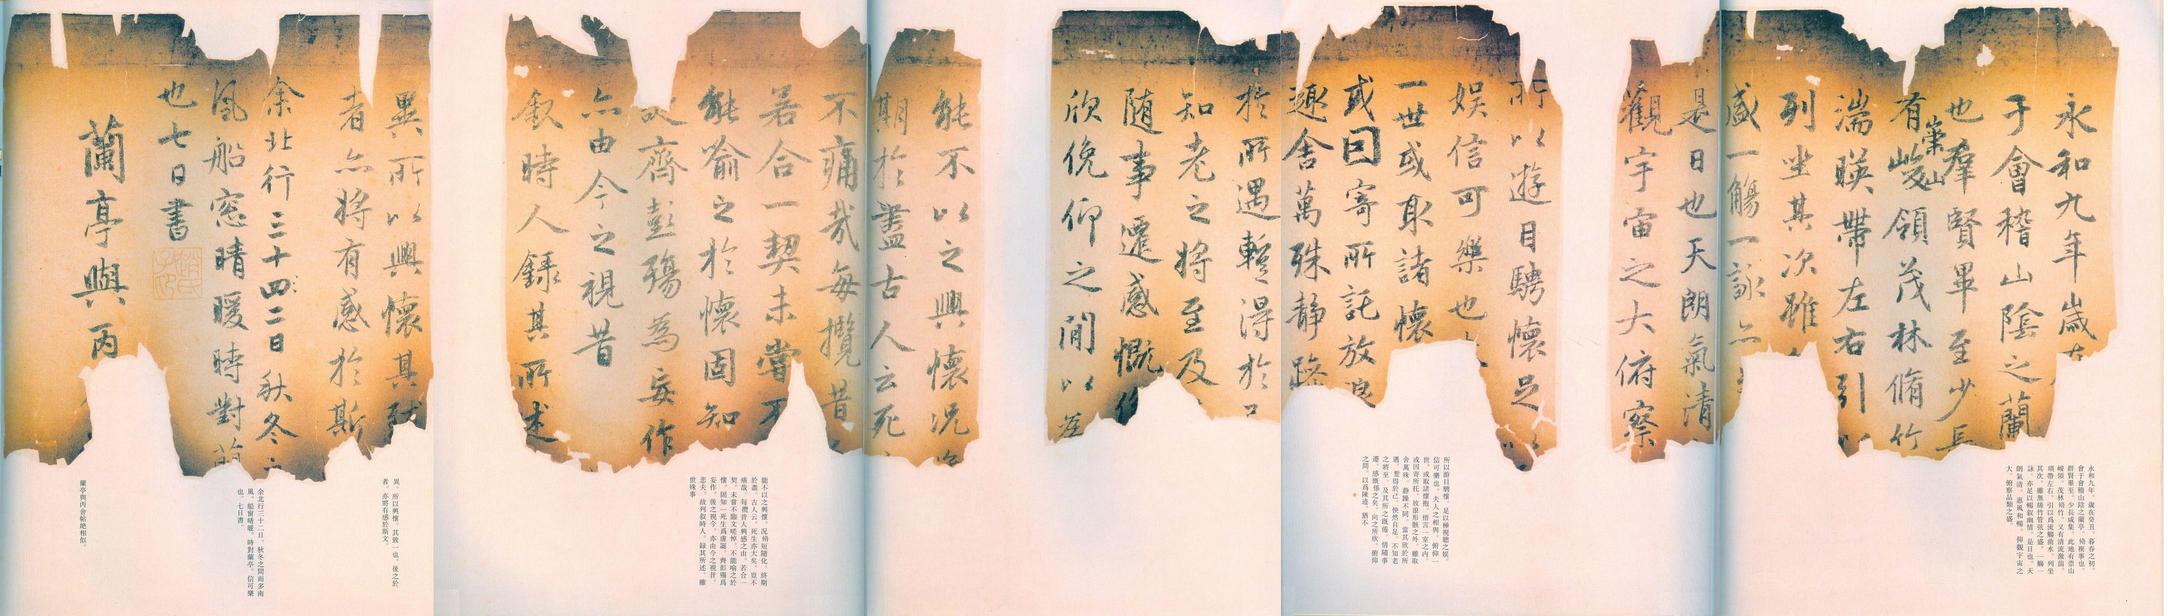 永和九年歲在
于會稽山陰之蘭
也羣賢畢至少長
有崇山峻領茂林脩竹
湍暎帶左右引以
列坐其次雖
盛一觴一詠亦
是日也天朗氣清
觀宇宙之大俯察
所以遊目騁懷足以
娛信可樂也
一世或取諸懷
或因寄所託放浪
趣舍萬殊静躁
於所遇暫得於己
知老之將至及
隨事遷感慨係
欣俛仰之閒以為
能不以之興懷況脩
期於盡古人云死
不痛哉每攬昔
若合一契未嘗不
能喻之於懷固知
誕齊彭殤為妄作
亦由今之視昔
叙時人錄其所述
異所以興懷其致
者亦將有感於斯
余北行三十四二日秋冬之
風船窓晴暖時對蘭
也七日書
蘭亭與丙舍
永和九年。歲在癸丑。暮春之初。
會于會稽山陰之蘭亭。脩禊事也。
群賢畢至。少長咸集。此地有崇山
峻領。茂林脩竹。又有清流激湍。
暎帶左右。引以爲流觴曲水。列坐
其次。雖無絲竹管弦之盛。一觴一
詠。亦足以暢叙幽情。是日也。天
朗氣清。惠風和暢。仰觀宇宙之
大。俯察品類之盛。
所以游目騁懷。足以極視聽之娛。
信可樂也。夫人之相與。俯仰一
世。或取諸懷抱。悟言一室之内。
或因寄所托。放浪形骸之外。雖取
舍萬殊。靜躁不同。當其欣於所
遇。暫得於己。怏然自足。不知老
之將至。及其所之既倦。情隨事
遷。感慨係之矣。向之所欣。俯仰
之間。以爲陳迹。猶不
能不以之興懷。况脩短隨化。終期
於盡。古人云。死生亦大矣。豈不
痛哉。每攬昔人興感之由。若合一
契。未嘗不臨文嗟悼。不能喻之於
懷。固知一死生爲虛誕。齊彭殤爲
妄作。後之視今。亦由今之視昔。
悲夫。故列叙時人。録其所述。雖
世殊事
異。所以興懷。其致一也。後之於
者。亦將有感於斯文。
余北行三十二日。秋冬之間而多南
風。船窗晴暖。時對蘭亭。信可樂
也。七日書。
蘭亭與丙舍帖絶相似。